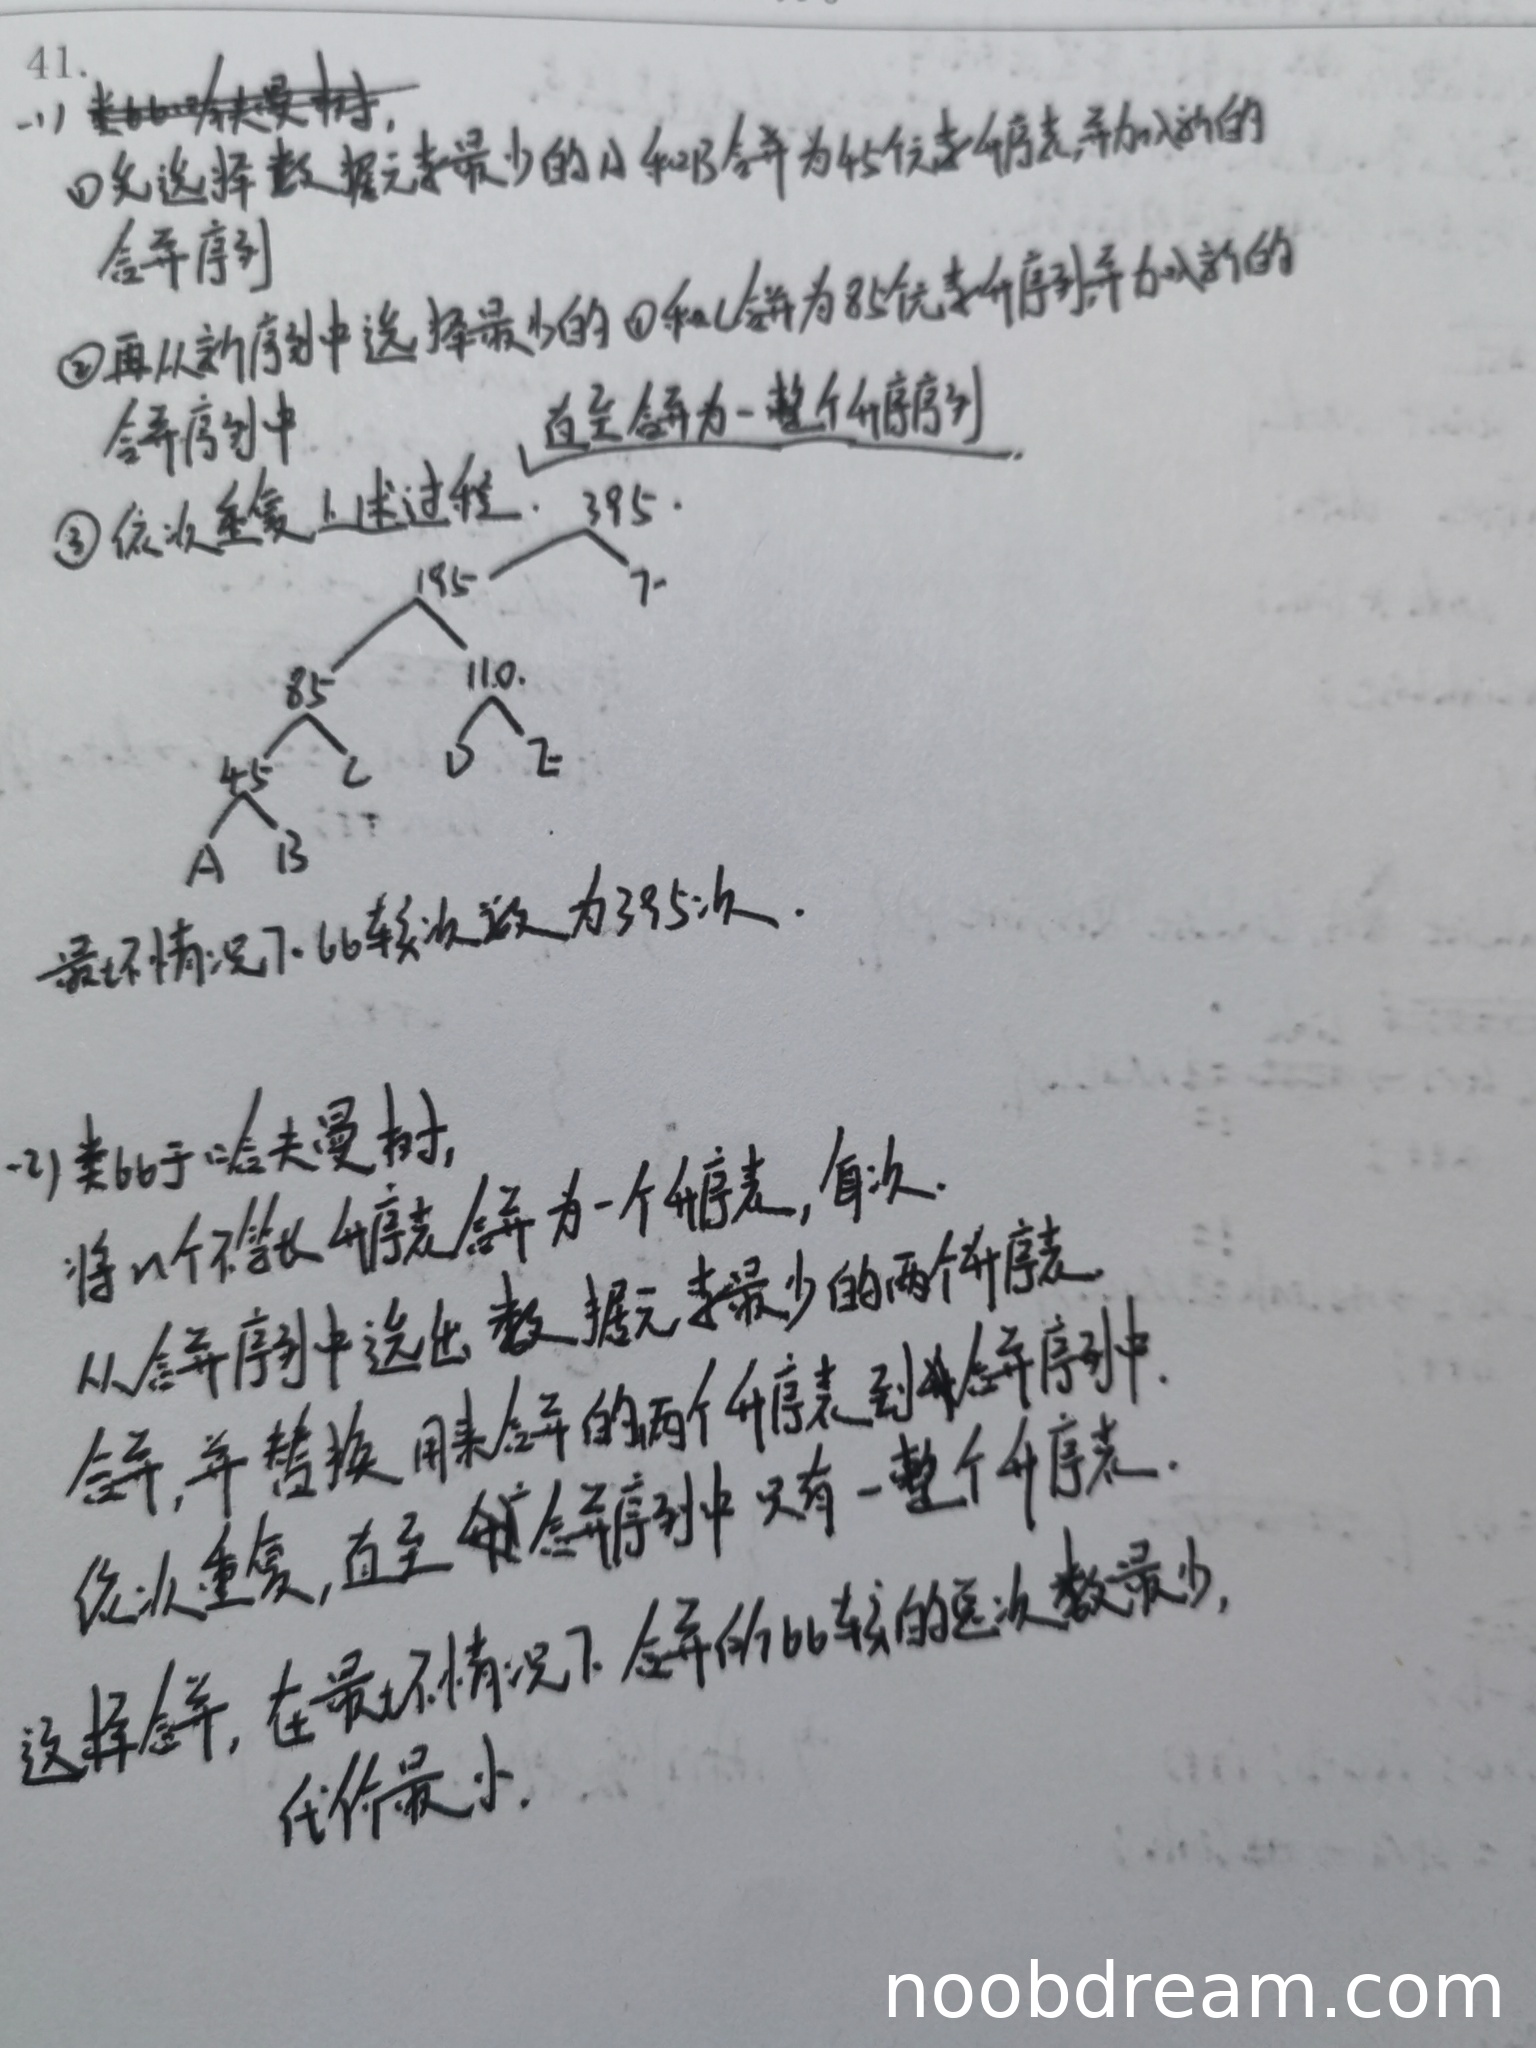 41.
(1)
①先选择数据元素最少的A和B合并为45个元素升序表,并加入新的
合并序列
②再从新序列中选择最少的①和C合并为85个元素升序列并加入新的
合并序列中
直至合并为一整个升序序列
③依次重复上述过程.
395.
195 F
85 110.
45 C D E
A B
最坏情况下比较次数为395次.
(2)类比于哈夫曼树,
将n个不等长升序表合并为一个升序表,每次.
从合并序列中选出数据元素最少的两个升序表
合并,并替换用来合并的两个升序表到合并序列中.
依次重复,直至合并序列中只有一整个升序表.
这择合并,在最坏情况下合并所比较的总次数最少,
代价最小.
noobdream.com